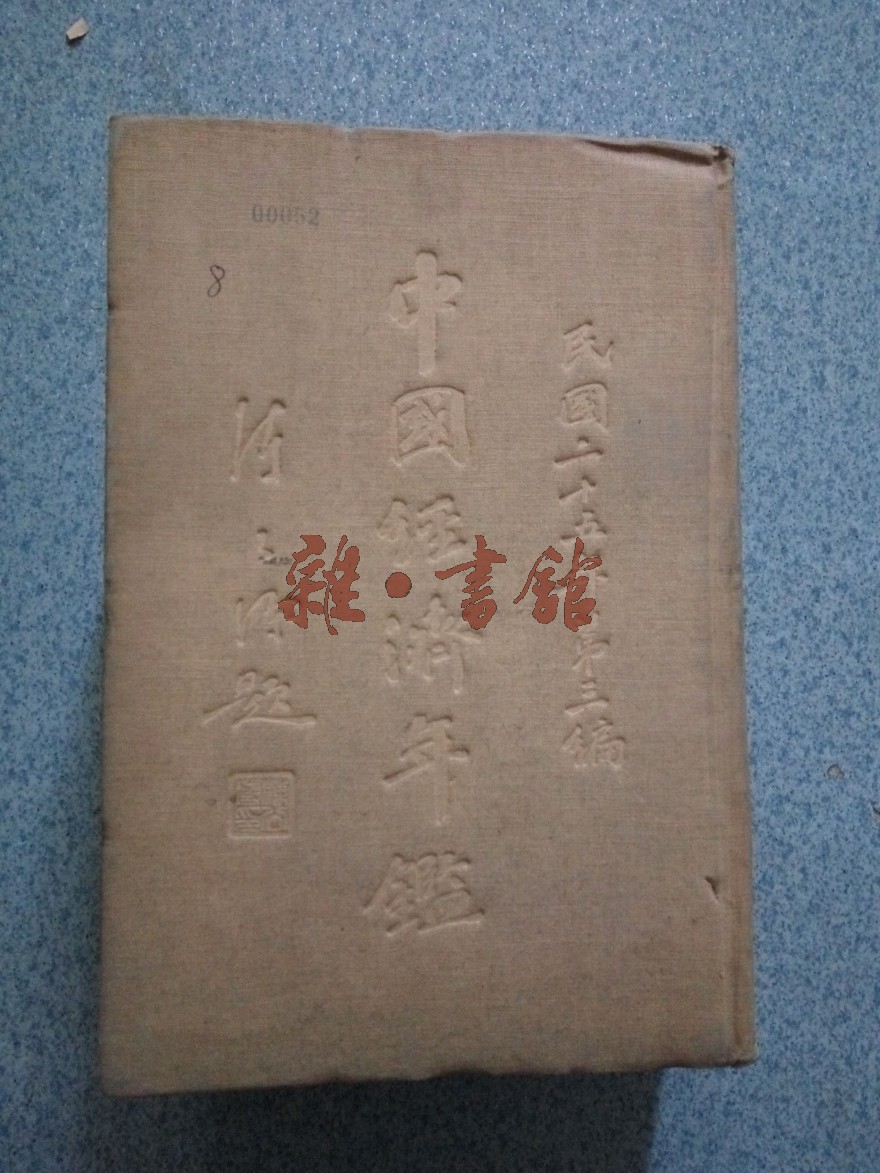 00052
8
民國二十五年第三編
中國經濟年鑑
題
雜·書館